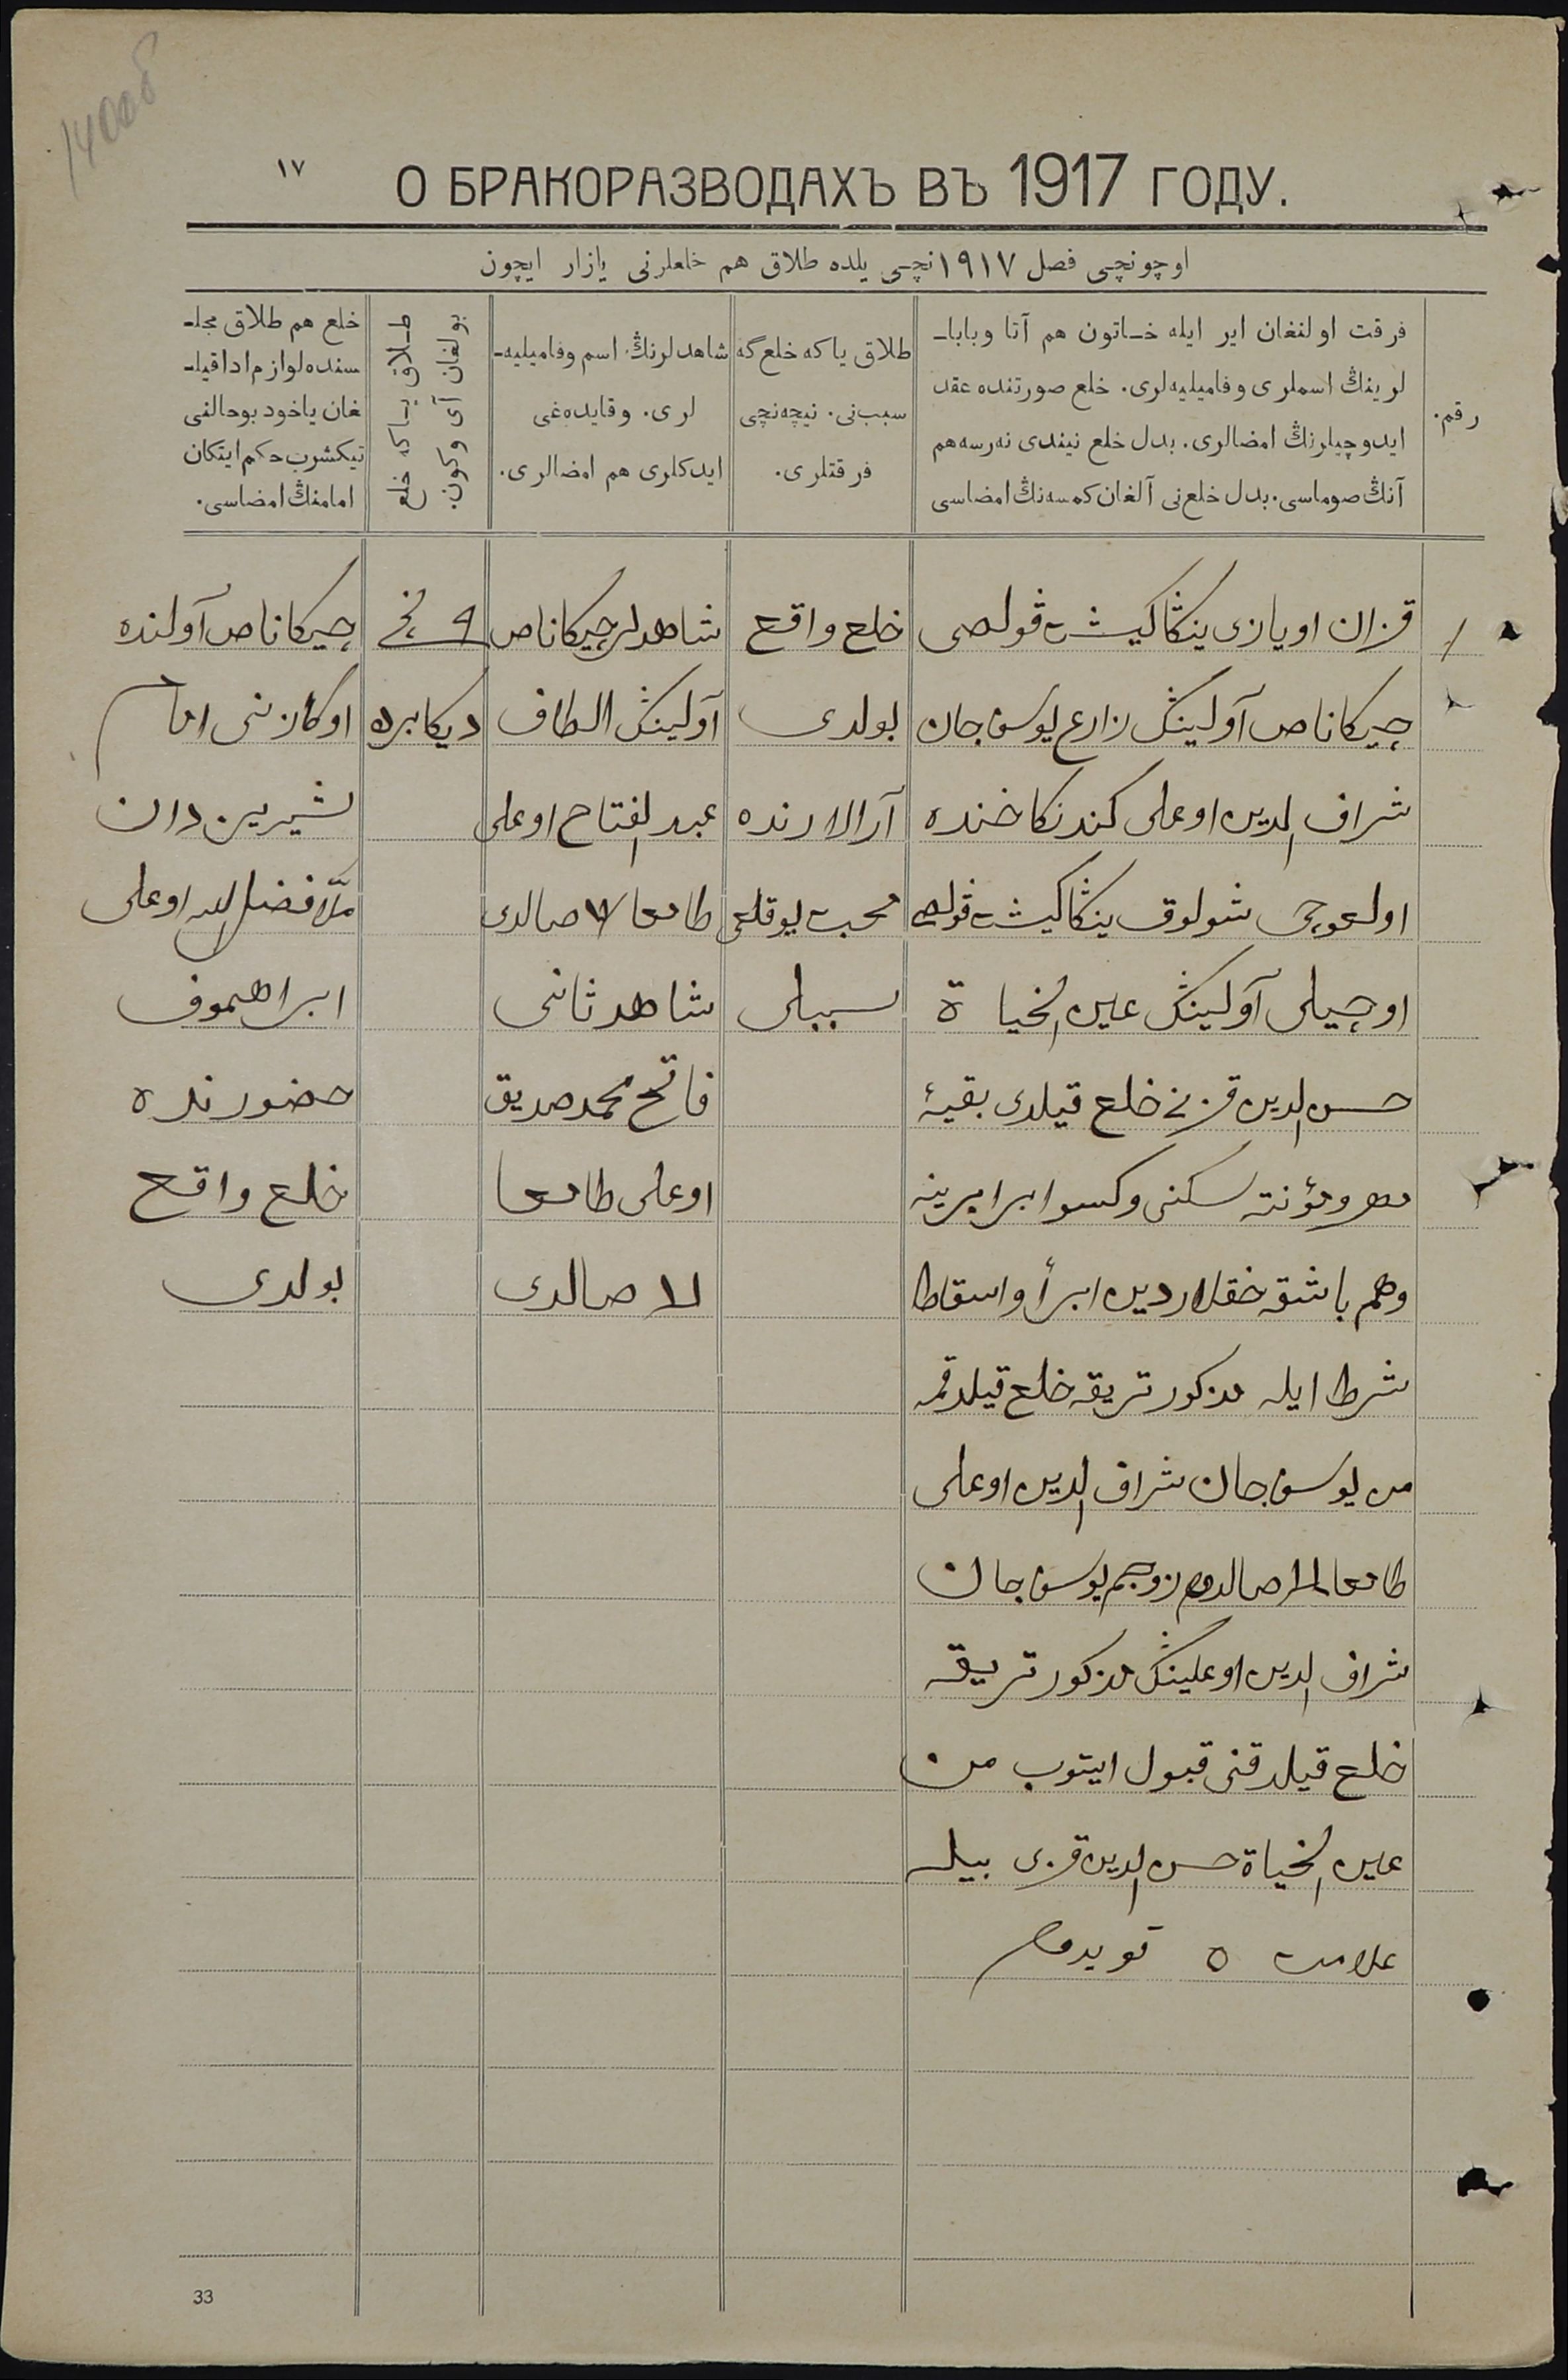 140об
١٧
О БРАКОРАЗВОДАХЪ ВЪ 1917 ГОДУ.
اوچونچی فصل ١٩١٧نچی یلده طلاق هم خلعلرنی یازار ایچون
رقم.
فرقت اولنغان ایر ایله خاتون هم آتا وبابا-
لرینڭ اسملری وفامیلیه‌لری. خلع صورتنده عقد
ایدوچیلرنڭ امضالری. بدل خلع نیندی نه‌رسه هم
آنڭ صوماسی. بدل خلع‌نی آلغان کمسه‌نڭ امضاسی
طلاق یاکه خلع گه
سبب‌نی. نیچه‌نچی
فرقتلری.
شاهدلرنڭ اسم وفامیلیه-
لری. وقایده‌غی
ایدکلری هم امضالری.
طلاق یاکه خلع
بولغان آی وکون.
خلع هم طلاق مجلـ
سنده لوازم ادا قیلـ
غان یاخود بوحالنی
تیکشرب حکم ایتکان
امامنڭ امضاسی.
١
قزان اویازی ینکاکیشت ڤولصی
چیکاناص آولینڭ زارع یوسف جان
شراف الدین اوغلی کند نکاخنده
اولغوچی شولوق ینکاکیشت ڤولصی
اوچیلی آولینڭ عین الخیاة
حسن الدین قزنی خلع قیلدی بقیهٔ
مهر ومؤنته سکنی وکسوا برابرینه
وهم باشقه خقلاردین ابرأ واسقاط
شرط ایله مذکور تریقه خلع قیلدقمه
من یوسف جان شراف الدین اوغلی
طامغا صالدم زوجم یوسف جان
شراف الدین اوغلینڭ مذکور تریقه
خلع قیلدقنی قبول ایتوب من
عین الخیاة حسن الدین قزی بیله
علامت ه قویدم
خلع واقع
بولدی
آرالارنده
محبت یوقلغی
سببلی
شاهدلر چیکاناص
آولینڭ الطاف
عبد الفتاح اوغلی
طامغا صالدی
شاهد ثانی
فاتح محمد صدیق
اوغلی طامغا
صالدی
٩ نچی
دیکابرده
چیکاناص آولنده
اوکازنی امام
بشیرین دان
ملا فضل الله اوغلی
ابراهیموف
حضورنده
خلع واقع
بولدی
33